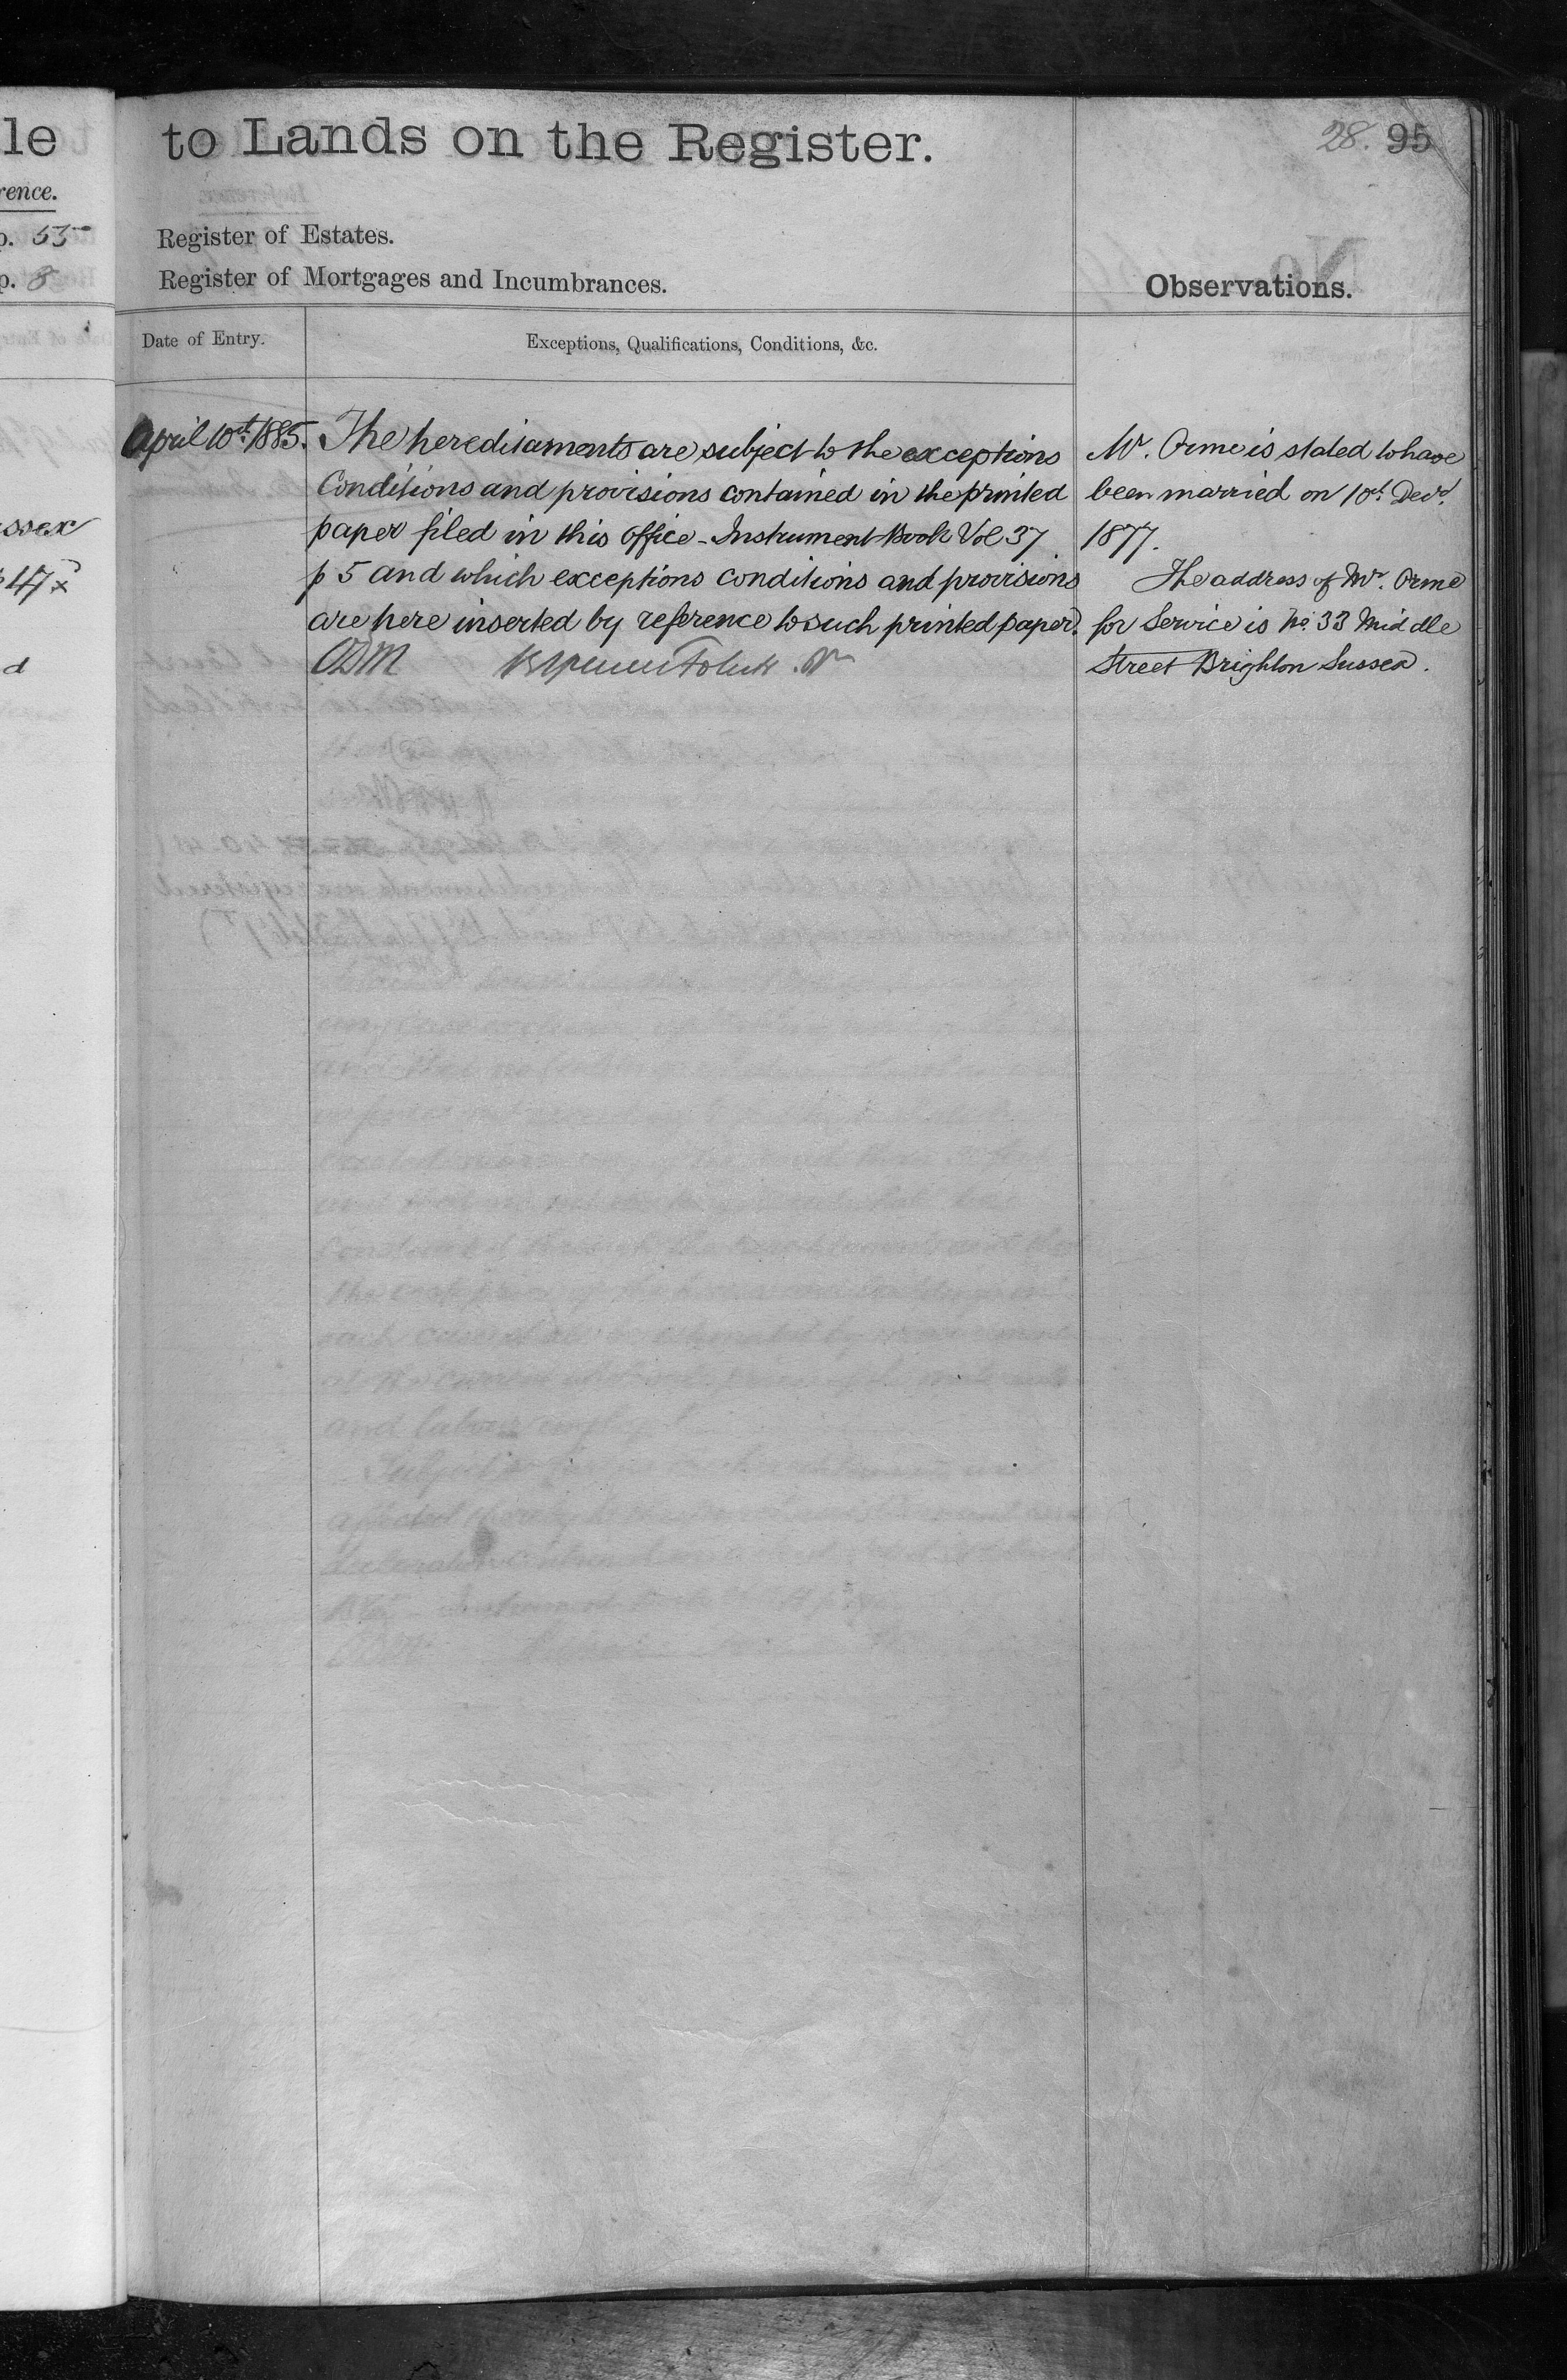 le
rence.
p. 55
p. 8
ssex
47 x
d
to Lands on the Register.
28. 95
Register of Estates.
Register of Mortgages and Incumbrances.
Observations.
Date of Entry.
Exceptions, Qualifications, Conditions, &c.
April 10th 1885.
The hereditaments are subject to the exceptions
Conditions and provisions contained in the printed
paper filed in this Office - Instrument Book Vol 37
p 5 and which exceptions conditions and provisions
are here inserted by reference to such printed paper.
Mr. Orme is stated to have
been married on 10th Decr
1877.
The address of Mr. Orme
for Service is No. 33 Middle
Street Brighton Sussex.